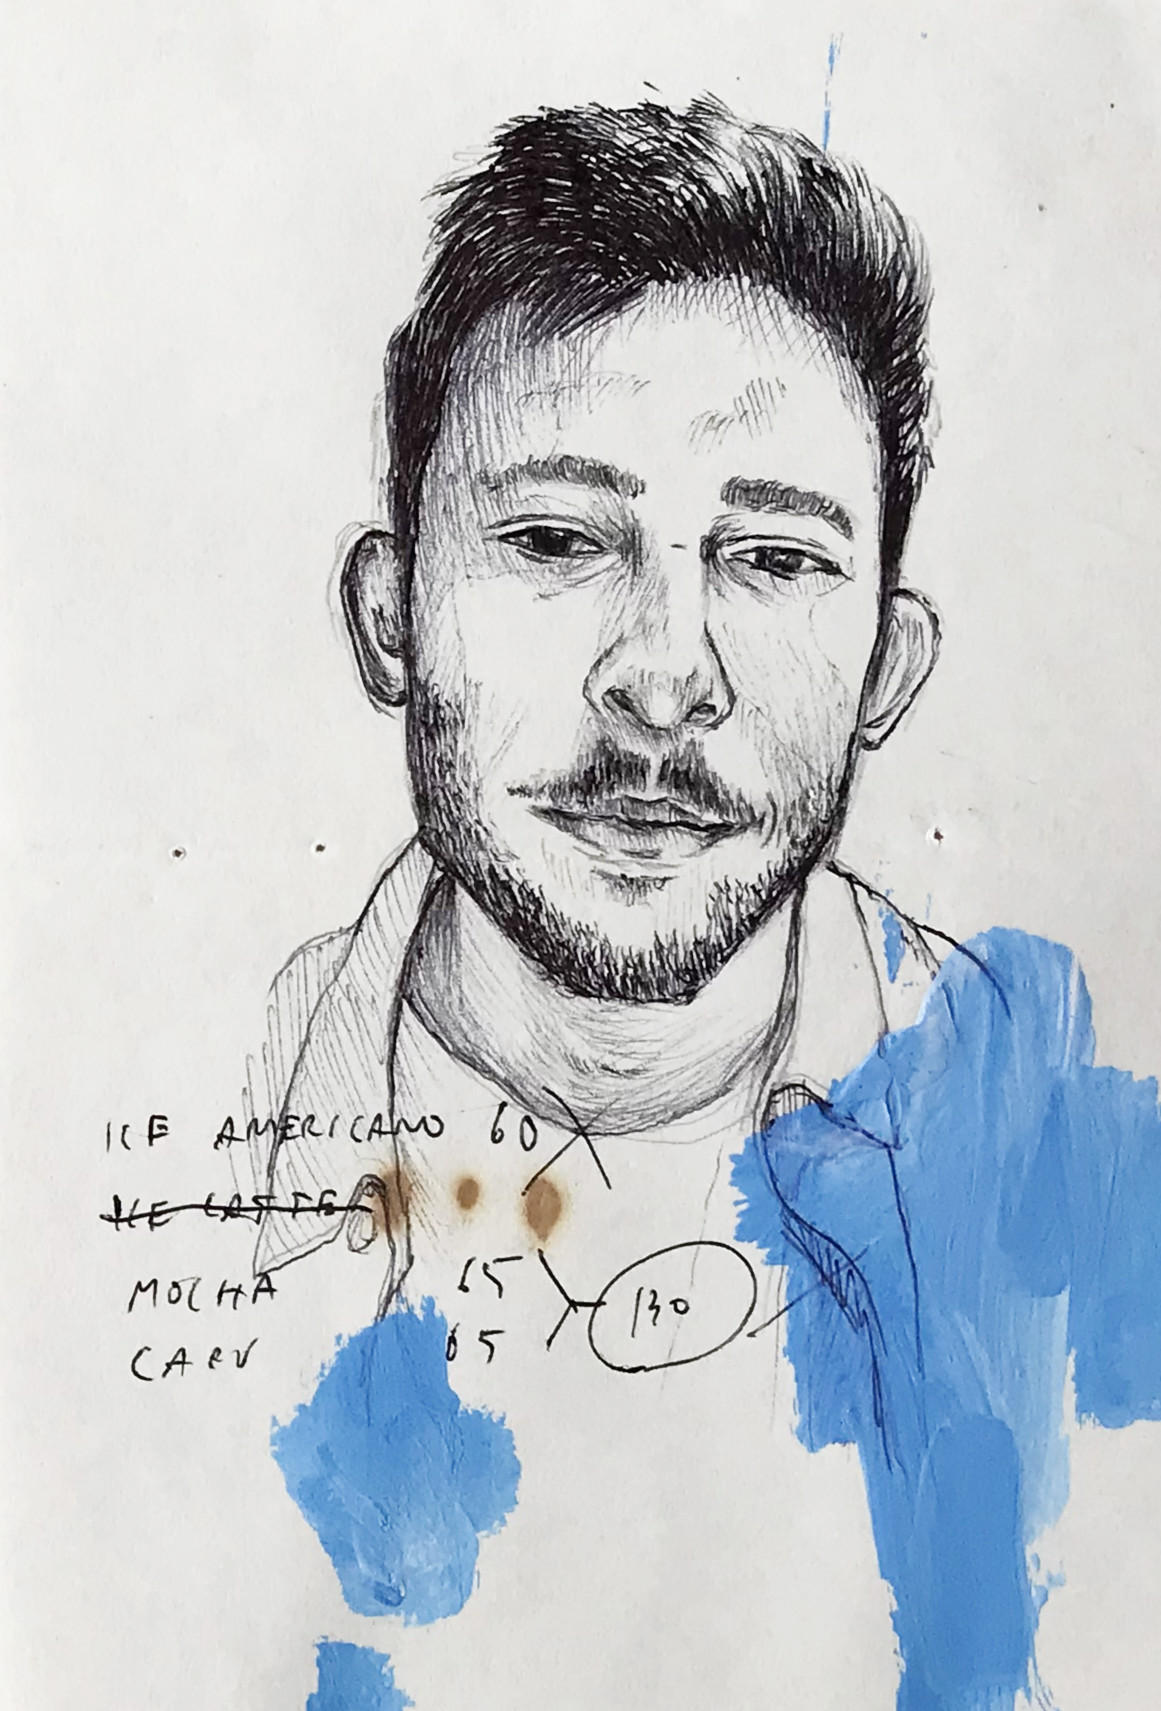 ICE AMERICANO 60
ICE LATTE
MOCHA 65
CAPU 65
130